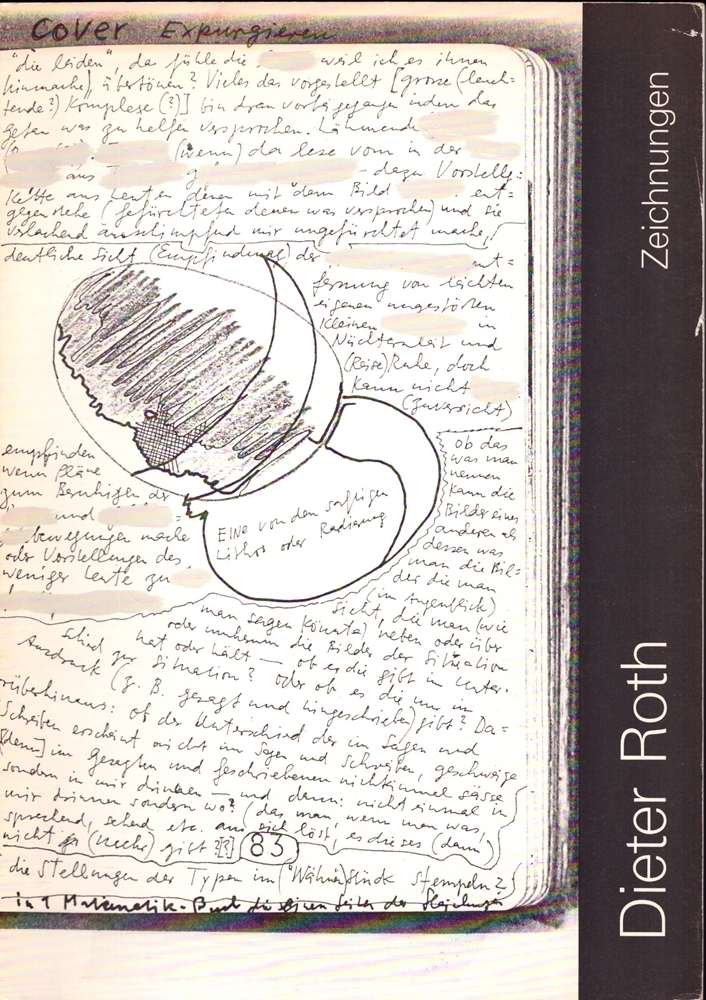 cover Expurgieren
"die leiden", da fühle die weil ich es ihnen
hinmache) übertönen? Vieles das vorgestellt [grosse (leuch=
tende?) Komplexe (?)] bin dran vorbeigegangen indem das
getan was zu helfen versprochen. Lähmende
(wenn) da lese vorn in der
aus g - dazu Vorstelle=
Kette aus Leuten denen mit dem Bild ent=
gegenstehe (gefürchteten denen was versprochen) und sie
verlachend mir ungefürchtet mache,
deutliche Sicht (Empfindung) der nt=
fernung von leichten
eigenen ungestörten
kleinen in
Nüchternheit und
(Reise)Ruhe, doch
kann nicht
(Zuversicht)
empfinden
wenn Pläne
zum Beruhigen der
und =
bewegungen mache
oder Vorstellungen des
weniger Leute zu
EINE von den saftigen
Lithos oder Radierung
ob das
was man
nennen
kann die
Bilder eines
anderen als
dessen was
man die Bil=
der die man
(im Augenblick)
sieht, die man (wie
man sagen könnte) neben oder über
oder um die Bilder der Situation
hat oder hält — ob es die gibt im Unter=
schied zur Situation? oder ob es die nur im
Ausdruck (z. B. gesagt und hingeschrieben) gibt? Da=
rüberhinaus: ob der Unterschied der im Sagen und
Schreiben erscheint nicht im Sagen und Schreiben, geschweige
[denn] im Gesagten und Geschriebenen nichteinmal sässe
sondern in mir drinnen — und dann: nicht einmal in
mir drinnen sondern wo? (das man, wenn man was,
sprechend, sehend etc. aus sich löst, es dieses (dann)
nicht (mehr) gibt ?[?] 83
die Stellungen der Typen im ("Wähne)Stück Stempeln?)
in 1 Matematik-Buch die einen Seiten der
Zeichnungen
Dieter Roth